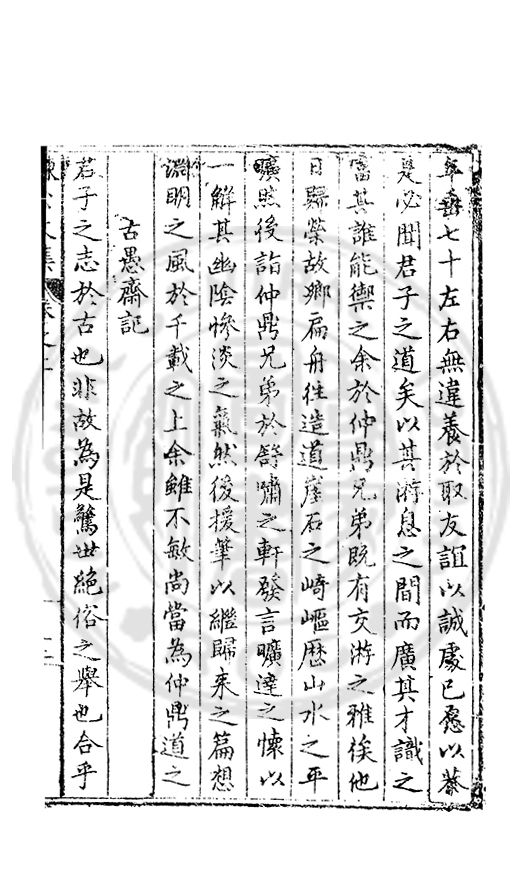 年垂七十左右無違養於取友誼以誠處已慤以恭
是必聞君子之道矣以其游息之間而廣其才識之
富其誰能禦之余於仲鼎兄弟既有交游之雅俟他
日歸榮故鄉扁舟徃造道崖石之崎嶇歷山水之平
曠然後詣仲鼎兄弟於舒嘯之軒發言曠達之懷以
一觧其幽隂慘淡之氣然後援筆以繼歸來之篇想
淵明之風於千載之上余雖不敏尚當為仲鼎道之
古愚齋記
君子之志於古也非故為是驚世絶俗之舉也合乎